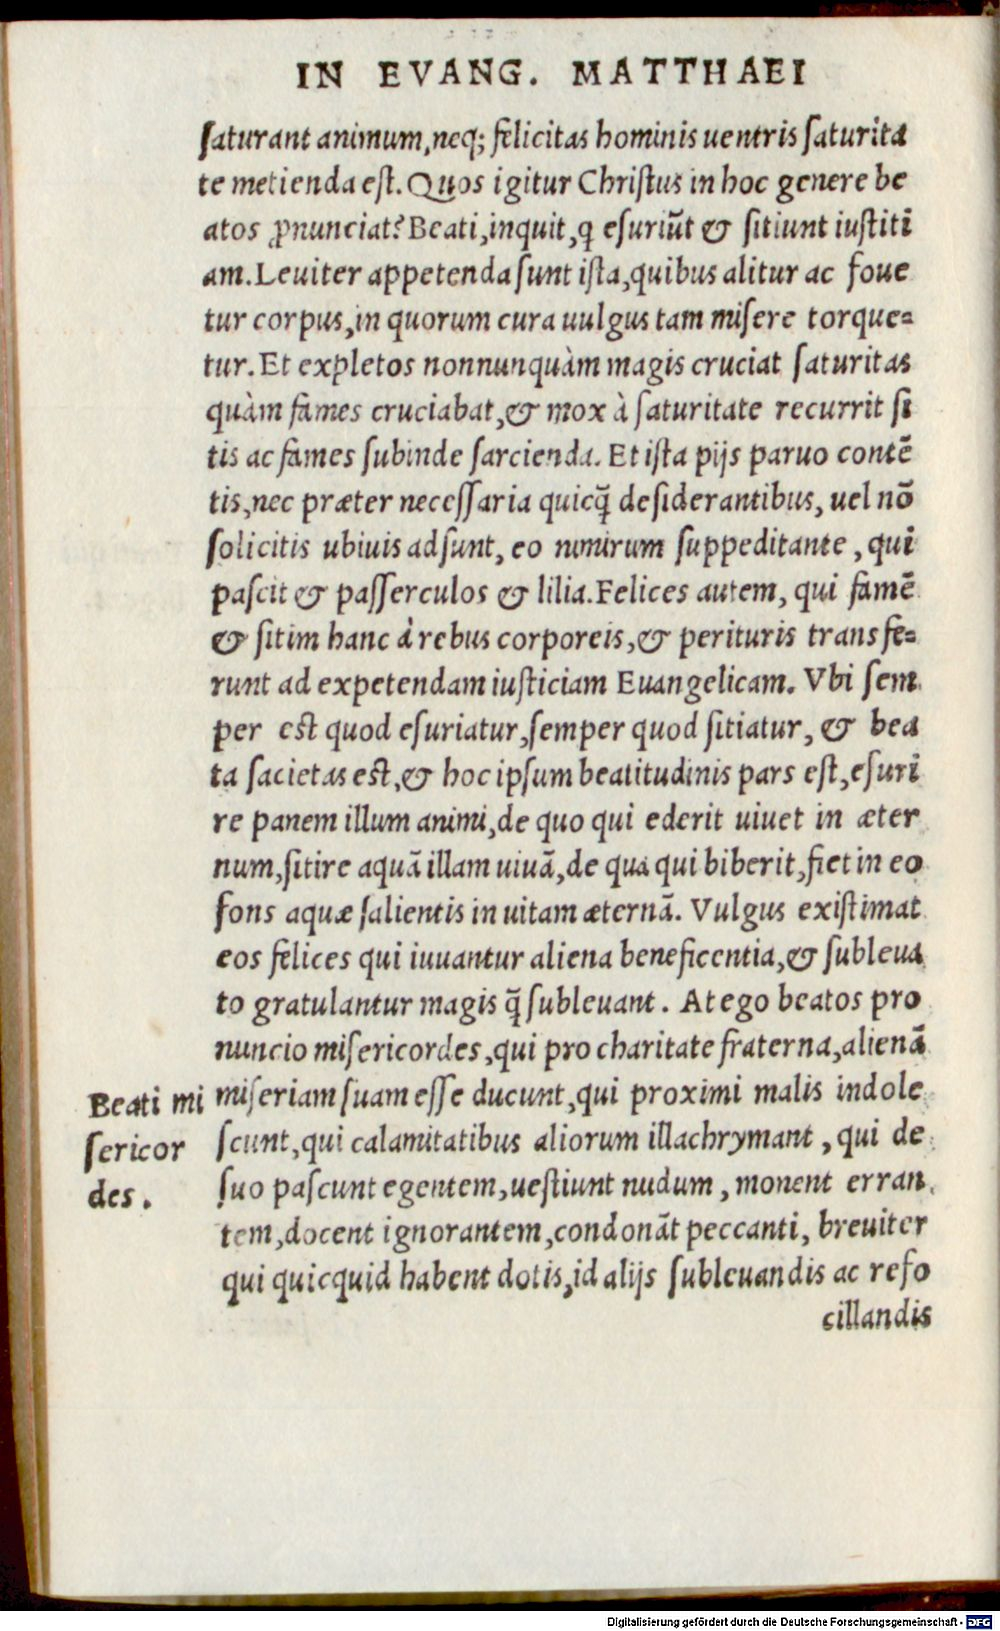 IN EVANG. MATTHAEI
ſaturant animum, neq; felicitas hominis uentris ſaturita
te metienda eſt. Quos igitur Chriſtus in hoc genere be
atos ꝓnunciat? Beati, inquit, ꝗ eſuriūt & ſitiunt iuſtiti
am. Leuiter appetenda ſunt iſta, quibus alitur ac foue
tur corpus, in quorum cura uulgus tam miſere torque=
tur. Et expletos nonnunquàm magis cruciat ſaturitas
quàm fames cruciabat, & mox à ſaturitate recurrit ſi
tis ac fames ſubinde ſarcienda. Et iſta pijs paruo contē
tis, nec præter neceſſaria quicq̃ deſiderantibus, uel nō
ſolicitis ubiuis adſunt, eo nimirum ſuppeditante, qui
paſcit & paſſerculos & lilia. Felices autem, qui famē
& ſitim hanc à rebus corporeis, & perituris transfe=
runt ad expetendam iuſticiam Euangelicam. Vbi ſem
per eſt quod eſuriatur, ſemper quod ſitiatur, & bea
ta ſacietas eſt, & hoc ipſum beatitudinis pars eſt, eſuri
re panem illum animi, de quo qui ederit uiuet in æter
num, ſitire aquā illam uiuā, de qua qui biberit, fiet in eo
fons aquæ ſalientis in uitam æternā. Vulgus exiſtimat
eos felices qui iuuantur aliena beneficentia, & ſubleua
to gratulantur magis q̃ ſubleuant. At ego beatos pro
nuncio miſericordes, qui pro charitate fraterna, alienā
miſeriam ſuam eſſe ducunt, qui proximi malis indole
ſcunt, qui calamitatibus aliorum illachrymant, qui de
ſuo paſcunt egentem, ueſtiunt nudum, monent erran
tem, docent ignorantem, condonāt peccanti, breuiter
qui quicquid habent dotis, id alijs ſubleuandis ac refo
cillandis
Beati mi
ſericor
des.
Digitalisierung gefördert durch die Deutsche Forschungsgemeinschaft - DFG